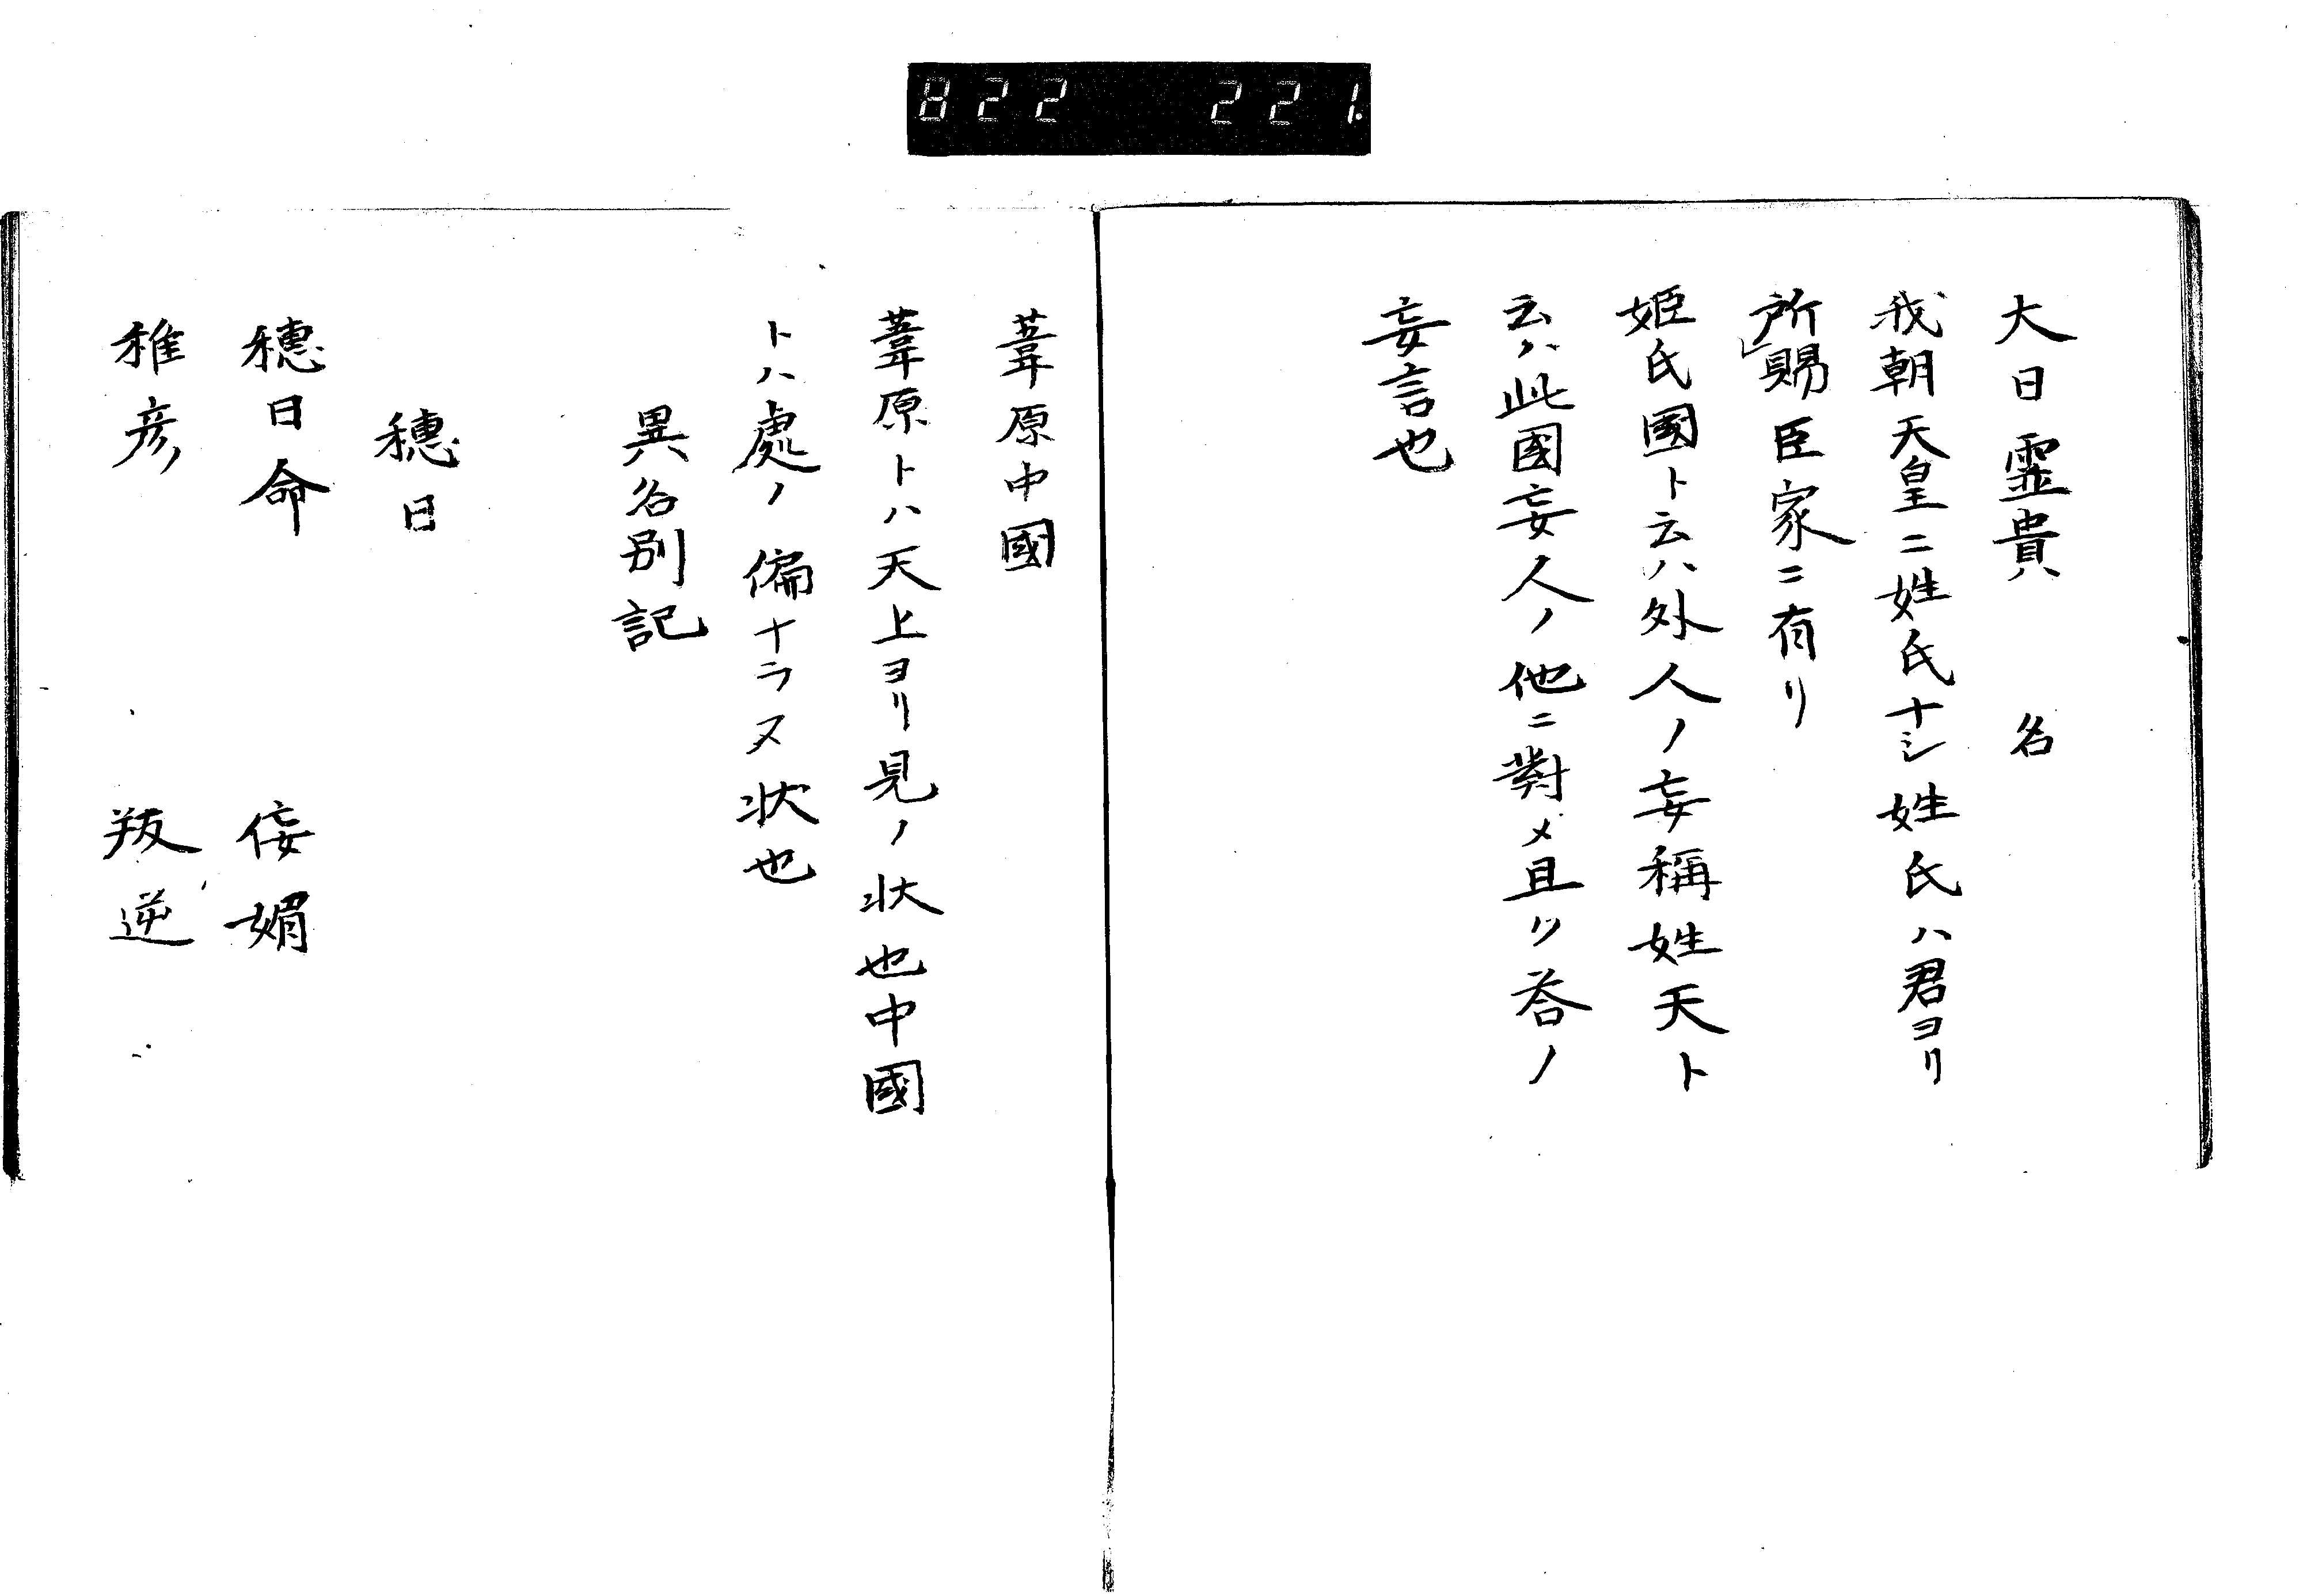 822 221.
大日霊貴 名
我朝天皇ニ姓氏ナシ姓氏ハ君ヨリ
所賜臣家ニ有リ
姬氏國ト云ハ外人ノ妄稱姓天ト
云ハ此國妄人ノ他ニ對メ且ツ荅ノ
妄言也
葦原中國
葦原トハ天上ヨリ見ノ状也中國
トハ處ノ偏ナラヌ状也
異名別記
穗日
穗日命 佞媚
稚彦 叛逆